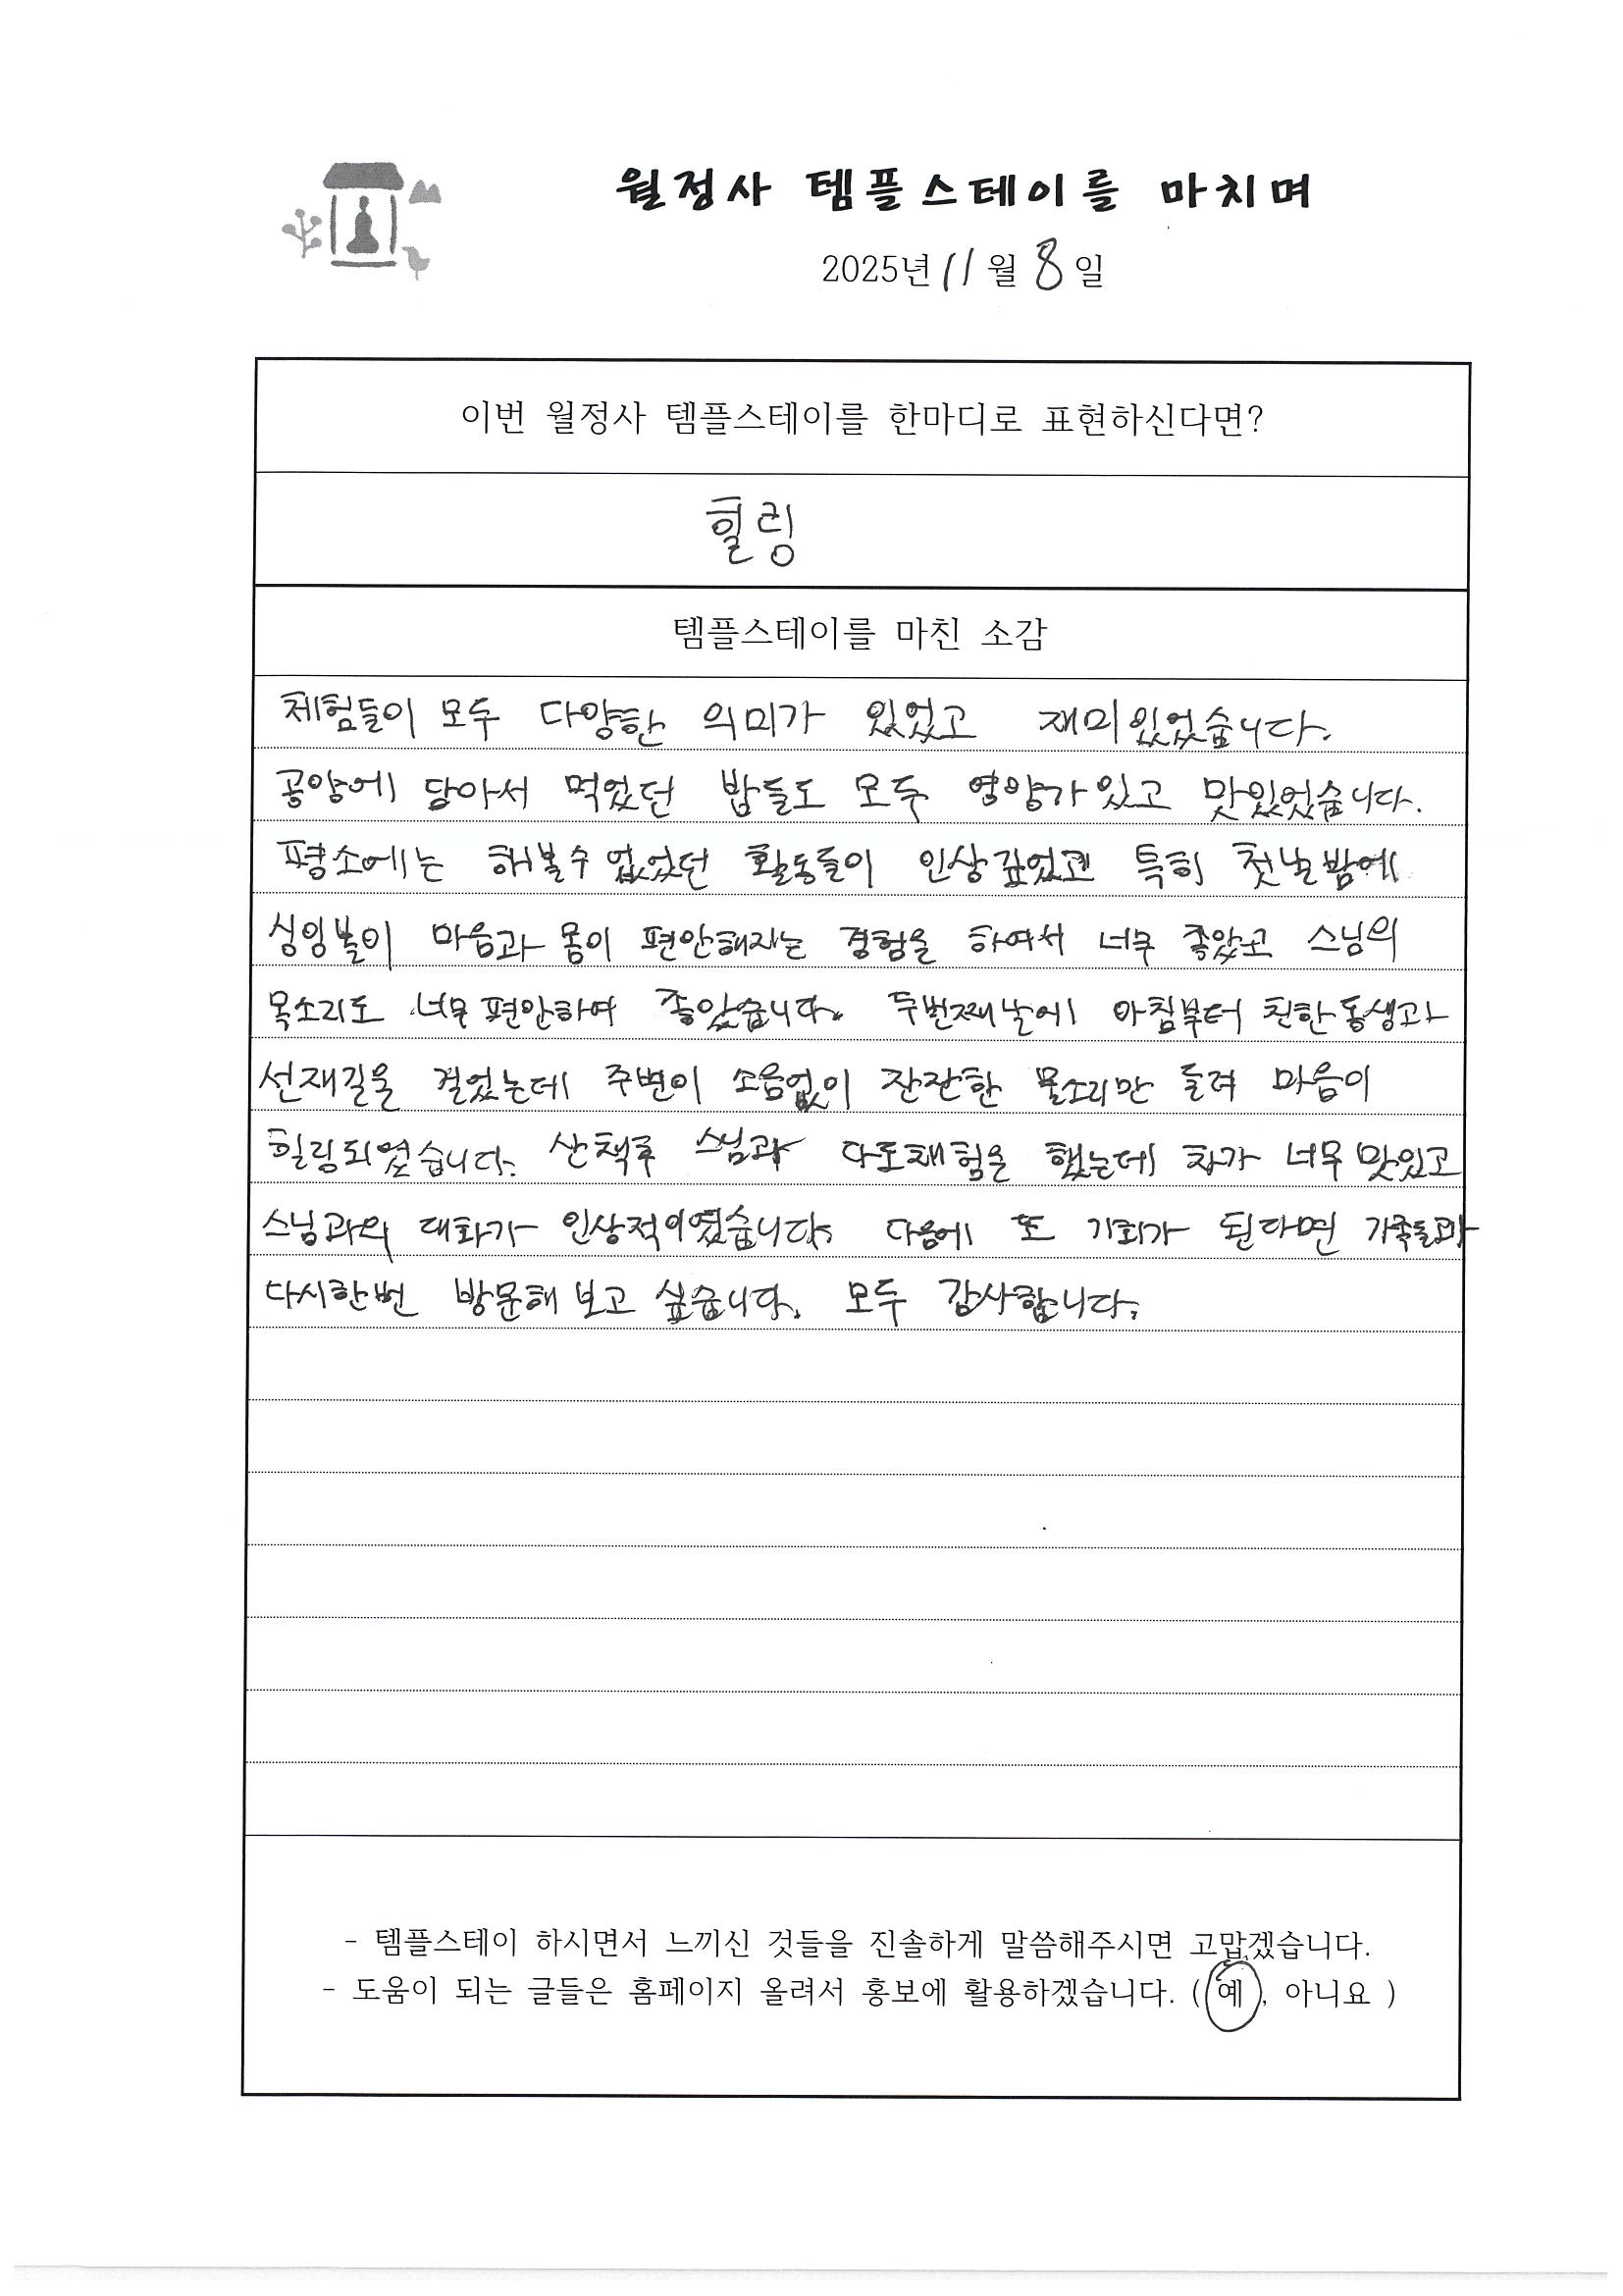 월정사 템플스테이를 마치며
2025년 11월 8일
이번 월정사 템플스테이를 한마디로 표현하신다면?
힐링
템플스테이를 마친 소감
체험들이 모두 다양한 의미가 있었고 재미있었습니다.
공양에 담아서 먹었던 밥들도 모두 영양가있고 맛있었습니다.
평소에는 해볼수 없었던 활동들이 인상깊었고 특히 첫날밤에
싱잉볼이 마음과 몸이 편안해지는 경험을 하여서 너무 좋았고 스님의
목소리도 너무 편안하여 좋았습니다. 두번째날에 아침부터 친한동생과
선재길을 걸었는데 주변이 소음없이 잔잔한 물소리만 들려 마음이
힐링되었습니다. 산책후 스님과 다도체험을 했는데 차가 너무 맛있고
스님과의 대화가 인상적이였습니다. 다음에 또 기회가 된다면 가족들과
다시한번 방문해보고 싶습니다. 모두 감사합니다.
- 템플스테이 하시면서 느끼신 것들을 진솔하게 말씀해주시면 고맙겠습니다.
- 도움이 되는 글들은 홈페이지 올려서 홍보에 활용하겠습니다. ( 예 , 아니요 )